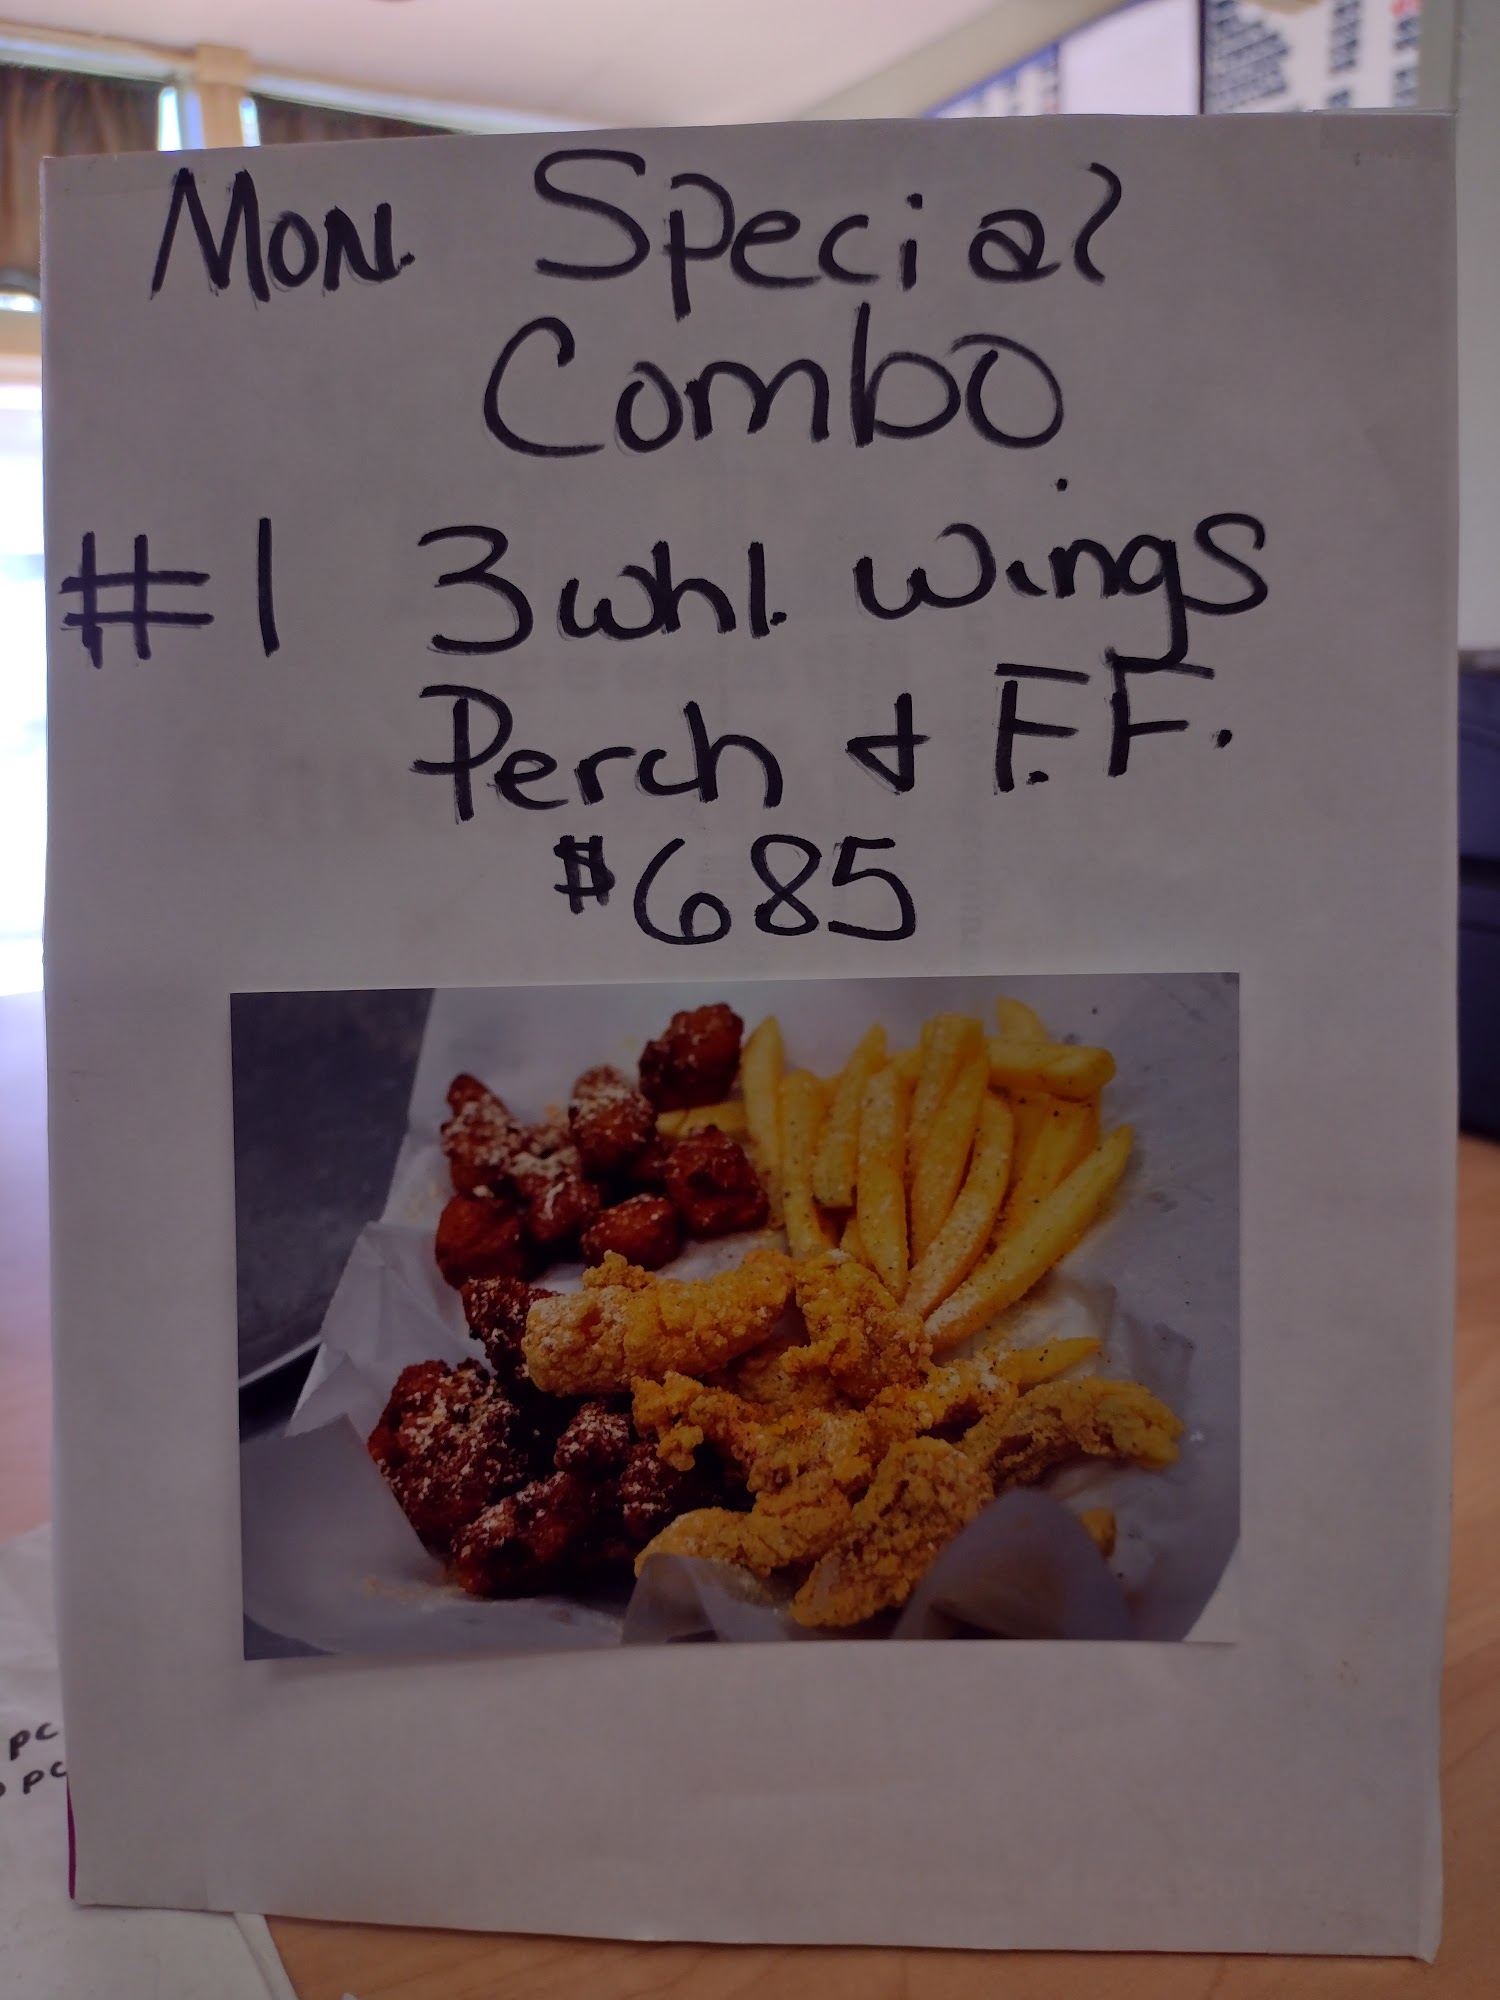 Mon. Special
Combo
#1 3 whl. wings
Perch & F.F.
$685
PC
PC